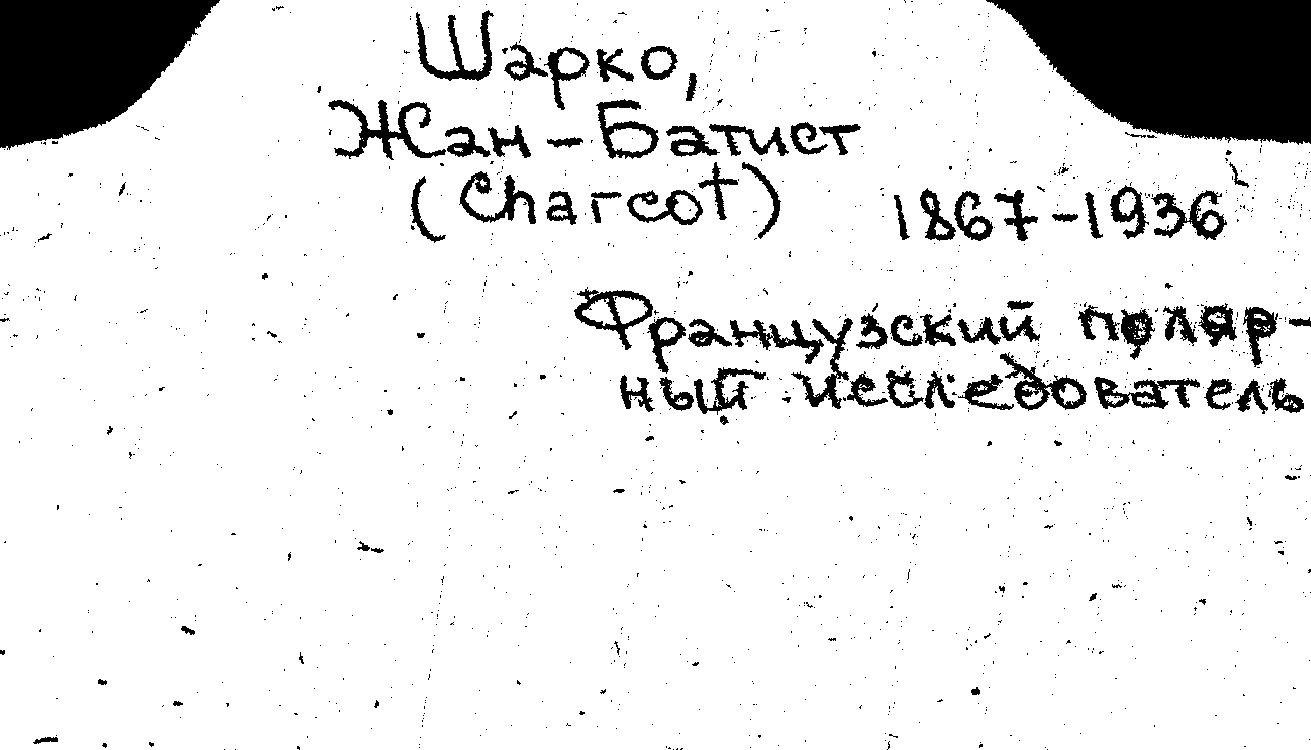 Шарко,
Жан-Батист
(Charcot) 1867-1936
Французский поляр-
ный исследователь